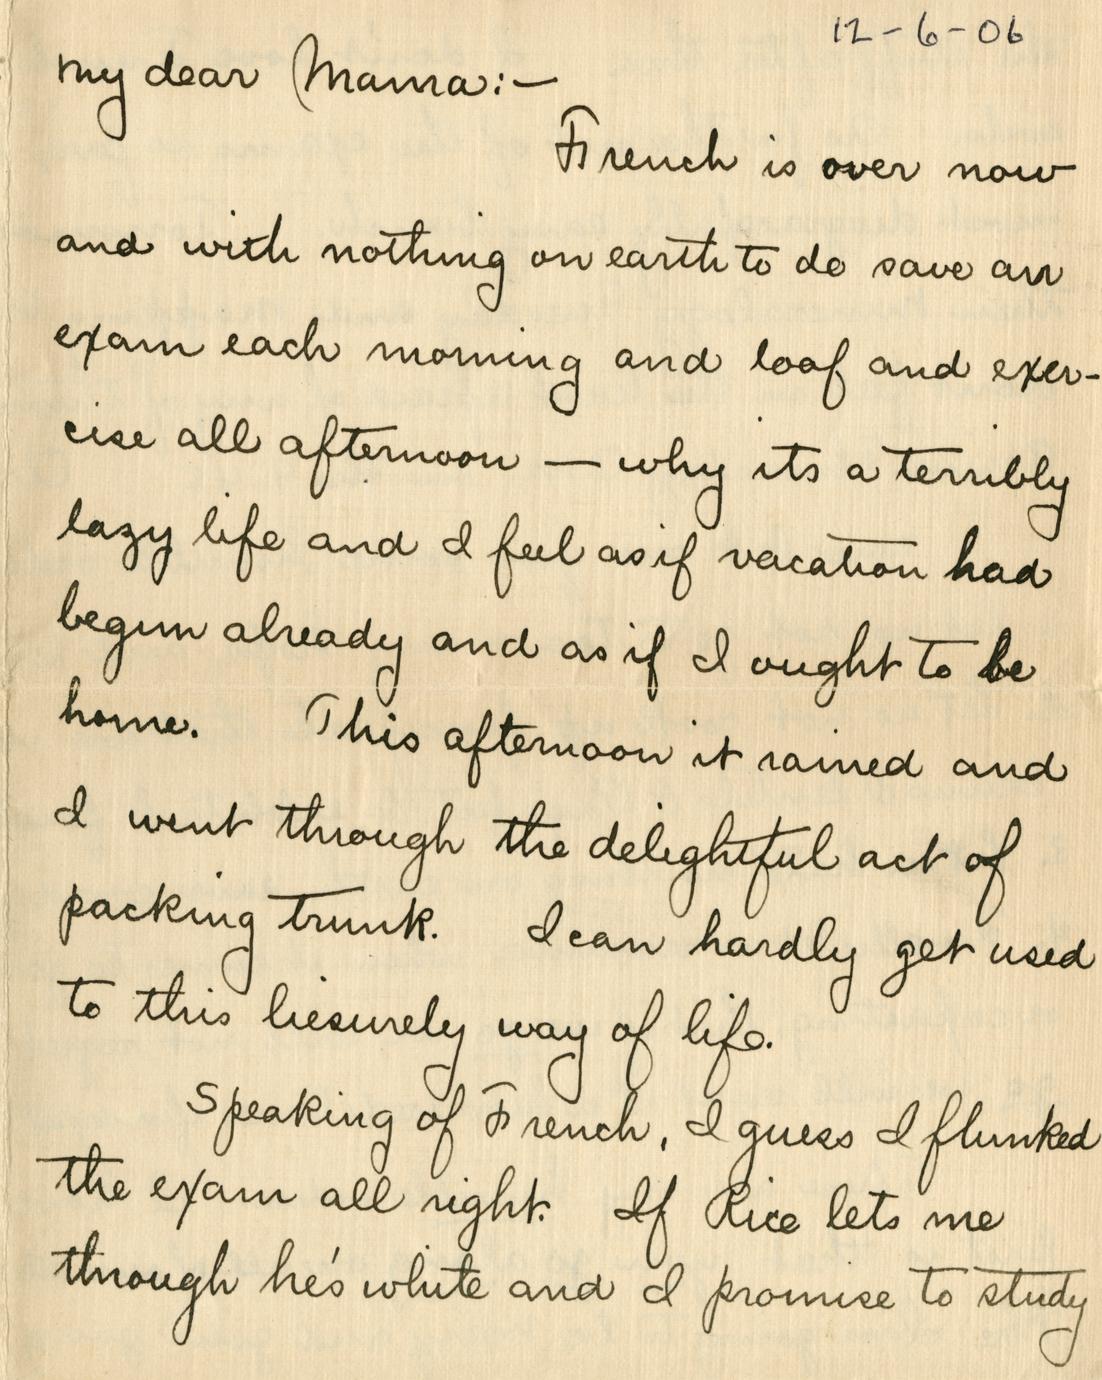 12-6-06
My dear Mama:—
French is over now
and with nothing on earth to do save an
exam each morning and loaf and exer-
cise all afternoon — why its a terribly
lazy life and I feel as if vacation had
begun already and as if I ought to be
home. This afternoon it rained and
I went through the delightful act of
packing trunk. I can hardly get used
to this liesurely way of life.
Speaking of French, I guess I flunked
the exam all right. If Rice lets me
through he's white and I promise to study